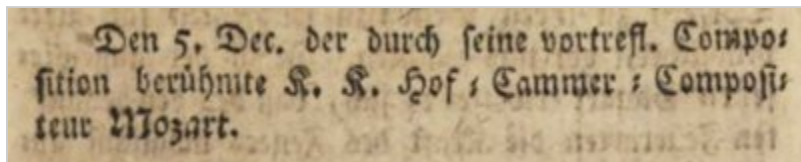 Den 5. Dec. der durch seine vortrefl. Compo⸗
sition berühmte K. K. Hof⸗Cammer⸗Composi⸗
teur Mozart.